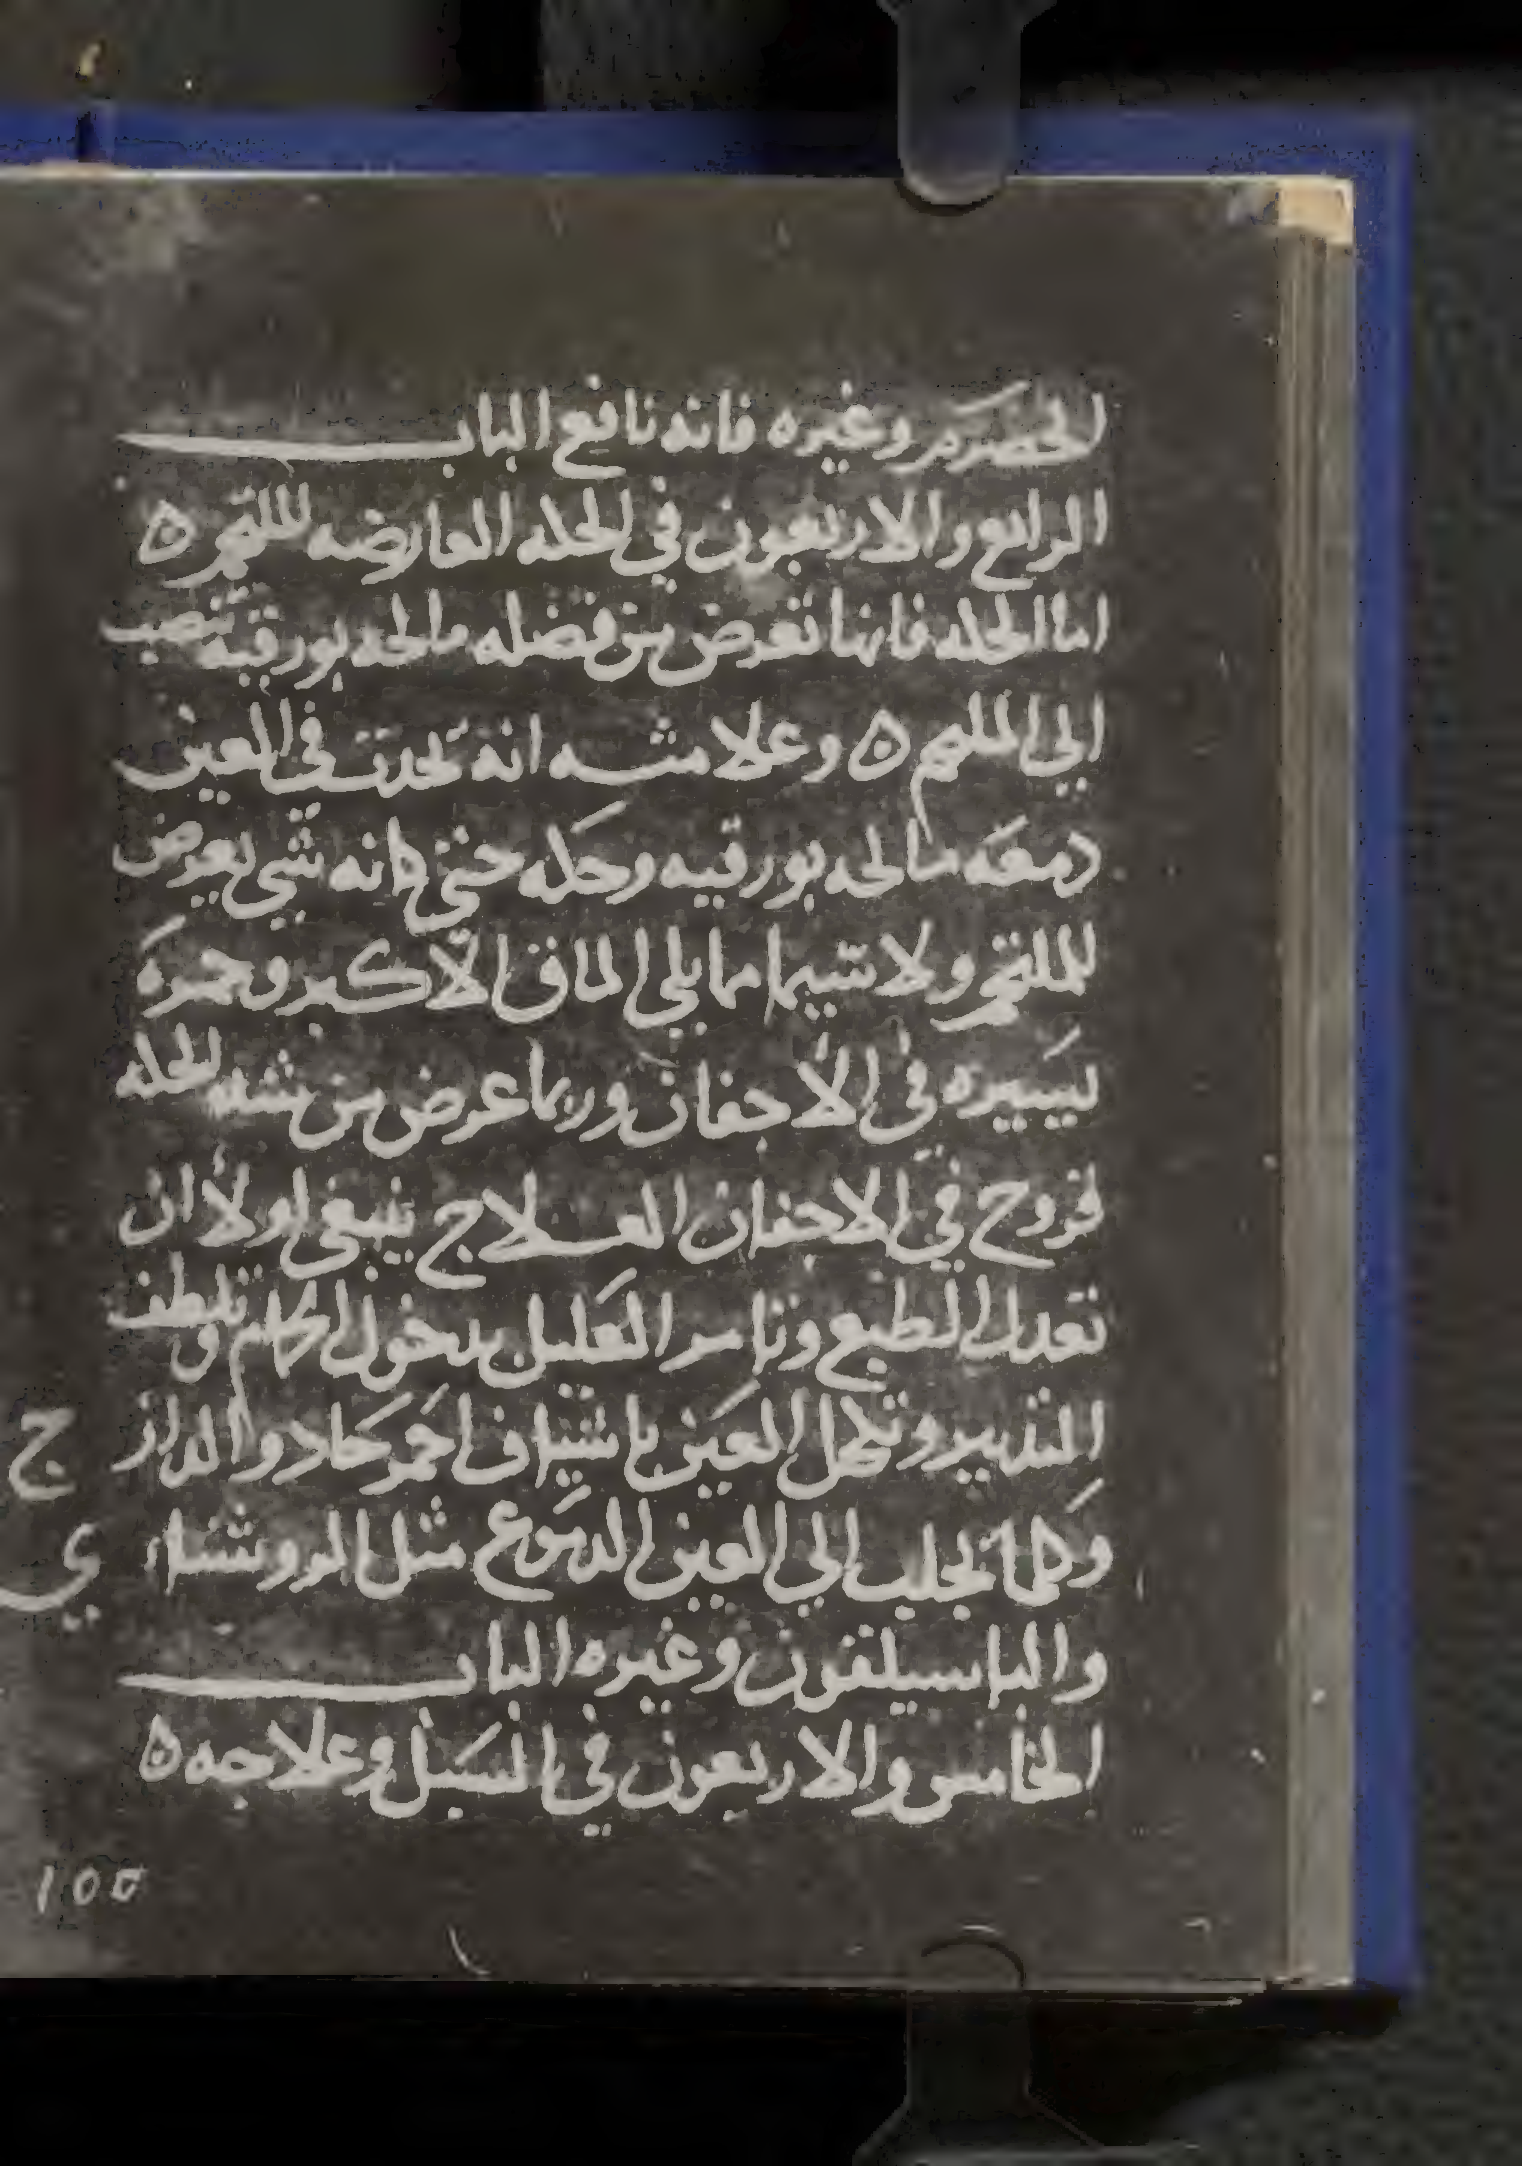 الحصرم وغيره فانه نافع الباب
الرابع والاربعون في الحكه العارضه للملتحم ه
اما الحكه فانها تعرض من فضله مالحه بورقيه تنصب
الي الملتحم ه وعلامته انه تحدث في العين
دمعه مالحه بورقيه وحكه حتي كانه شي يعرض
للملتحم ولا سيما مما يلي الماق الاكبر وحمره
يسيره في الاجفان وربما عرض من شده الحكه
قروح في الاجفان العلاج ينبغي اولا ان
تعدل الطبع وتامر العليل بدخول الحمام وتلطف
التدبير وتكحل العين باشياف احمر حاد والدارج
وكلما يجلب الي العين الدموع مثل الروشنايي
والباسيلقون وغيره الباب
الخامس والاربعون في السبل وعلاجه ه